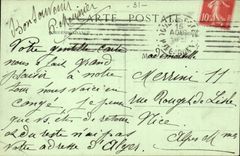 Bon souvenir
CARTE POSTALE
Votre gentille carte
nous a fait grand
plaisir à notre
tour nous voici en
congé. Je pense
que vs. êtes de retour
et du reste n'ai pas
votre adresse d'Alger.
Merrini 11
rue Rouget de Lisle
Nice
Alpes Mmes